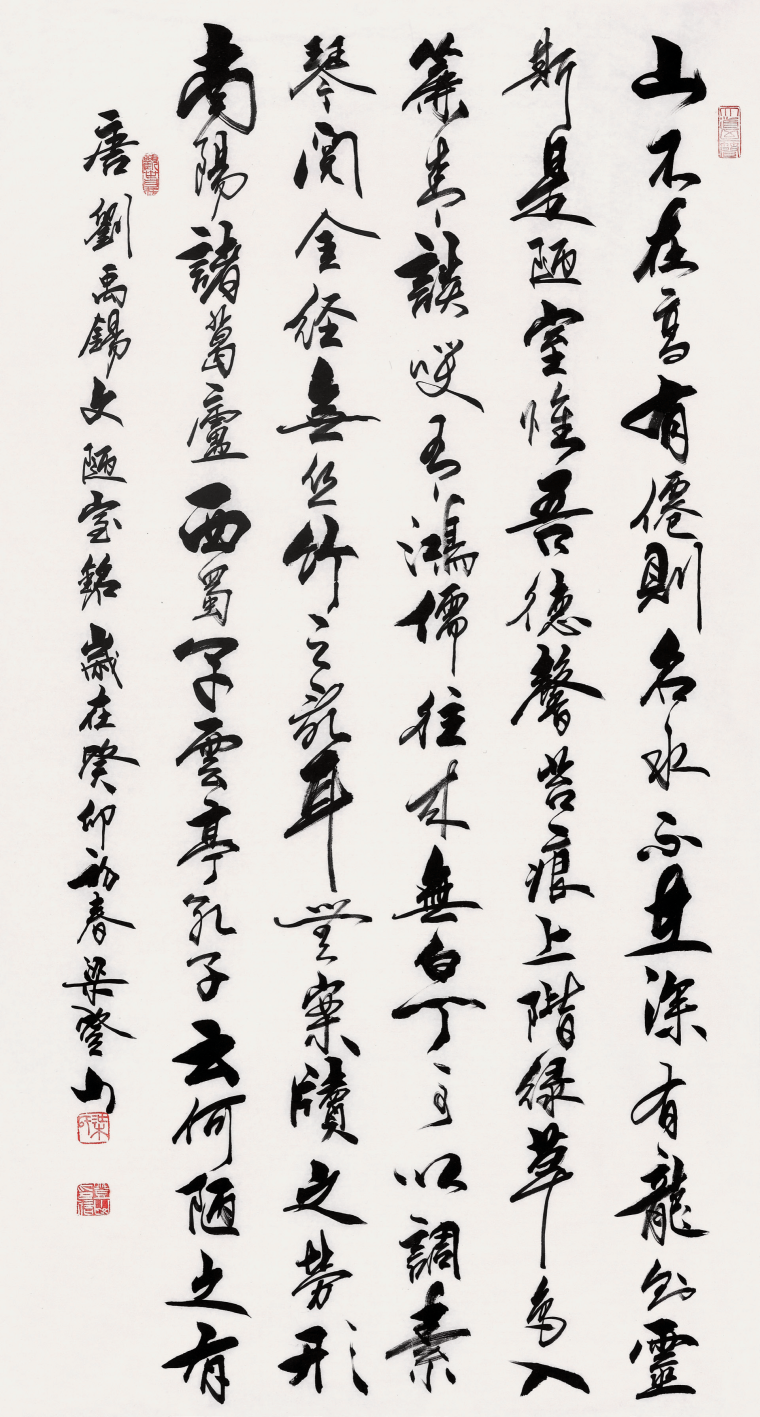 山不在高有僊則名水不在深有龍則靈
斯是陋室惟吾德馨苔痕上階緑草色入
簾青談咲有鴻儒往来無白丁可以調素
琴閲金経無丝竹之乱耳無案牘之勞形
南陽諸葛廬西蜀子雲亭孔子云何陋之有
唐劉禹錫文陋室銘歲在癸卯初春梁登山